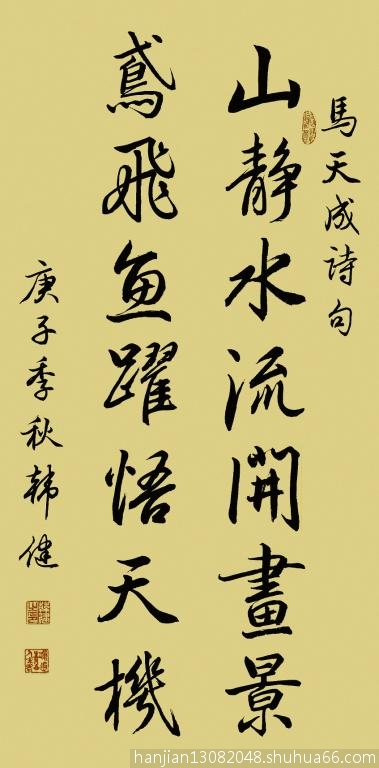 馬天成詩句
山靜水流開畫景
鳶飛魚躍悟天機
庚子季秋韩健
hanjian13082048.shuhua66.com